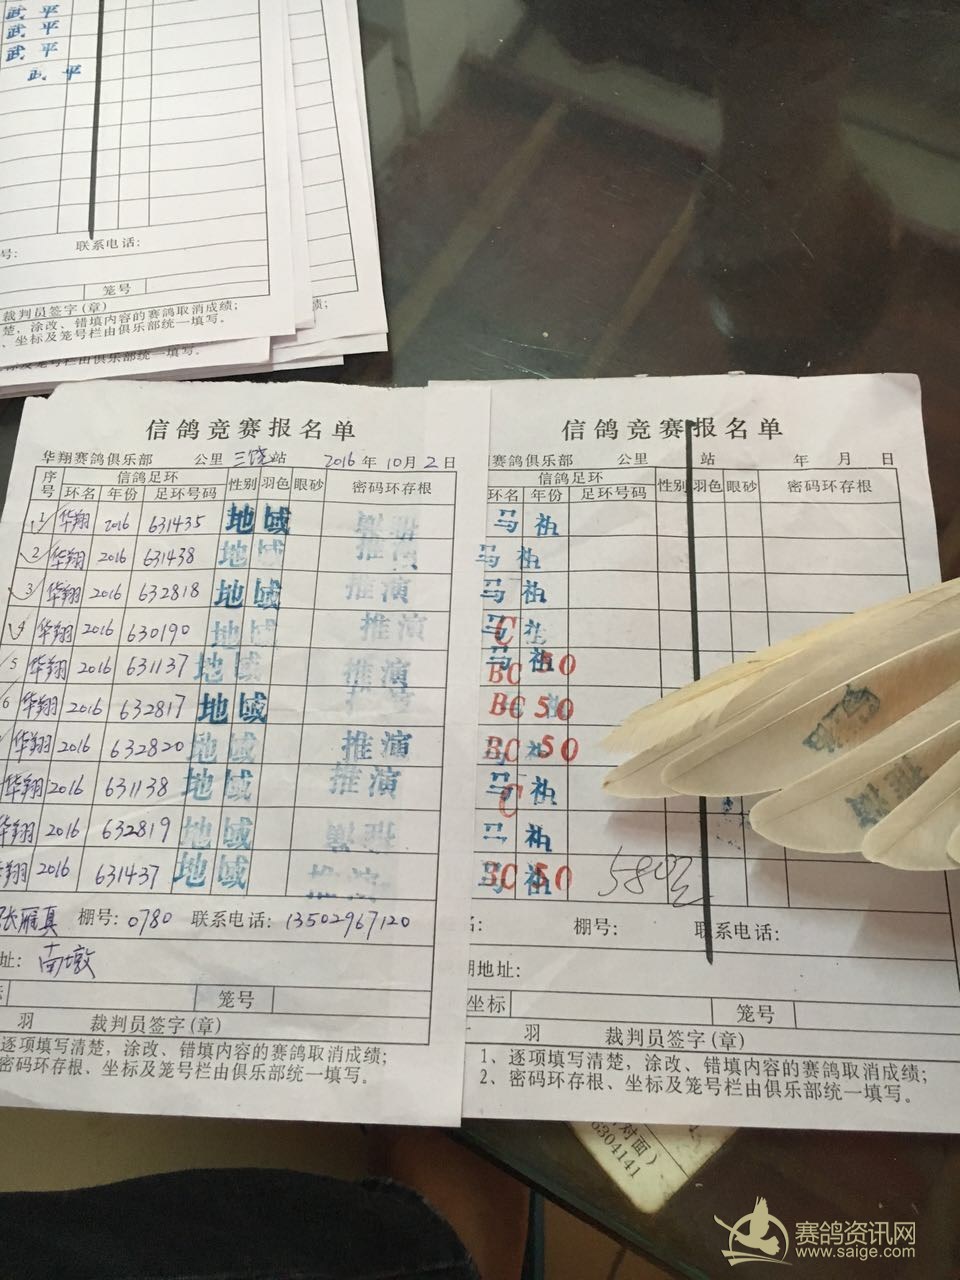 武平
武平
武平
武平
号: 联系电话:
笼号
裁判员签字(章)
楚，涂改、错填内容的赛鸽取消成绩;
、坐标及笼号栏由俱乐部统一填写。
信鸽竞赛报名单
华翔赛鸽俱乐部 公里 三饶站 2016年10月2日
序号 信鸽足环 性别 羽色 眼砂 密码环存根
环名 年份 足环号码
1 华翔 2016 631435 地域
2 华翔 2016 631438 地域 推演
3 华翔 2016 632818 地域 推演
4 华翔 2016 630190 地域 推演
5 华翔 2016 631137 地域 推演
6 华翔 2016 632817 地域
华翔 2016 632820 地域 推演
华翔 2016 631138 地域 推演
华翔 2016 632819 地域
华翔 2016 631437 地域 推演
张雁真 棚号: 0780 联系电话: 13502967120
址: 南墩
笼号
羽 裁判员签字(章)
逐项填写清楚，涂改、错填内容的赛鸽取消成绩;
密码环存根、坐标及笼号栏由俱乐部统一填写。
信鸽竞赛报名单
翔赛鸽俱乐部 公里 站 年 月 日
信鸽足环 性别 羽色 眼砂 密码环存根
环名 年份 足环号码
马祖
马祖
马祖
马祖 C
马祖 BC 50
BC 50
马祖 BC 50
马祖 C
马祖
马祖 BC 50 580
名: 棚号: 联系电话:
棚地址:
坐标 笼号
羽 裁判员签字(章)
1、逐项填写清楚，涂改、错填内容的赛鸽取消成绩;
2、密码环存根、坐标及笼号栏由俱乐部统一填写。
对面)
6304141
赛鸽资讯网
www.saige.com